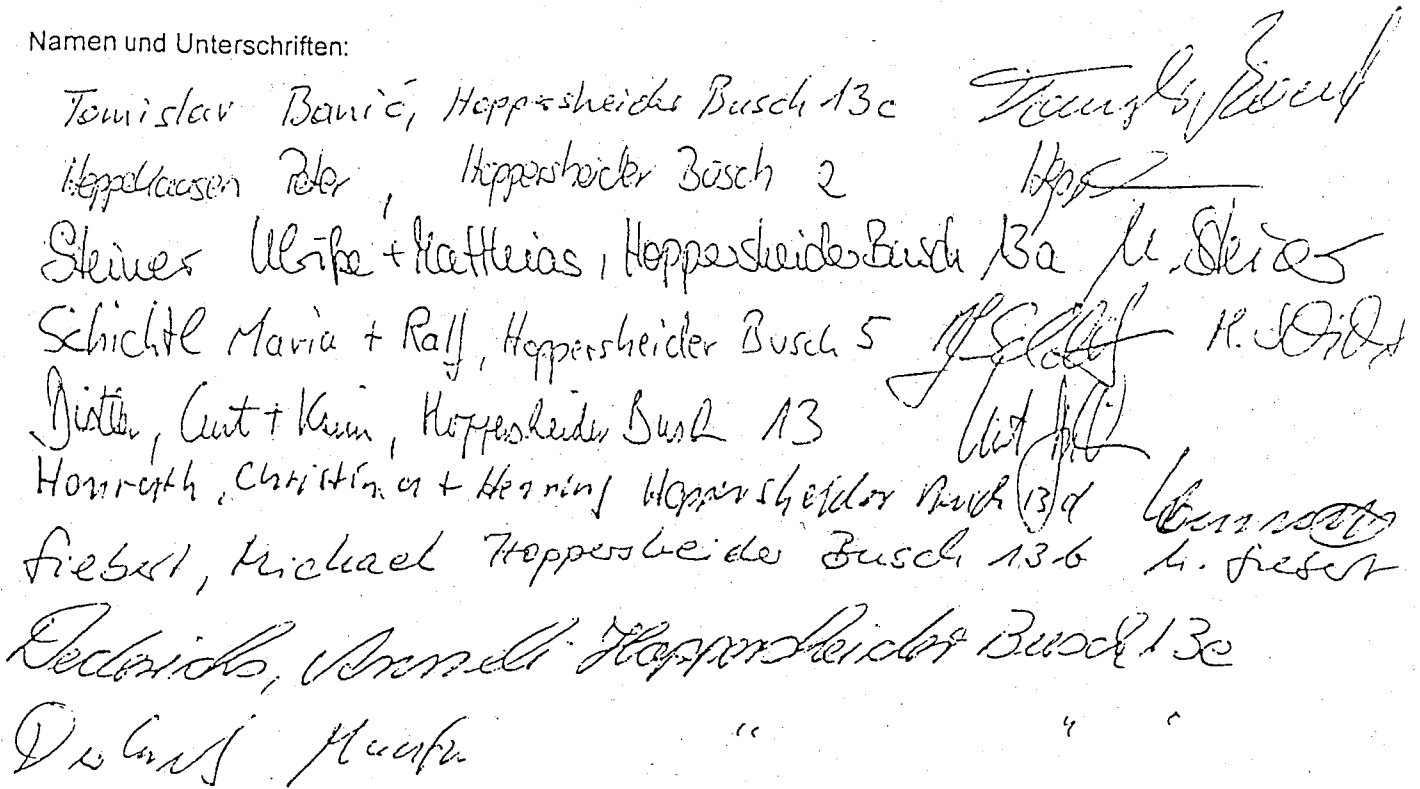 Namen und Unterschriften:
Tomislav Banić, Hoppersheider Busch 13c
Heppekausen Peter, Hoppersheider Busch 2 Hepp
Steiner Ulrike + Matthias, Hoppersheider Busch 13a M. Steiner
Schichtl Maria + Ralf, Hoppersheider Busch 5 M. Schichtl
Curt + Karin, Hoppersheider Busch 13 Curt
Honrath, Christina + Henning Hoppersheider Busch 13d
Siebert, Michael Hoppersheider Busch 13b M. Siebert
Dederichs, Anneli Hoppersheider Busch 13e
Dederichs " " "